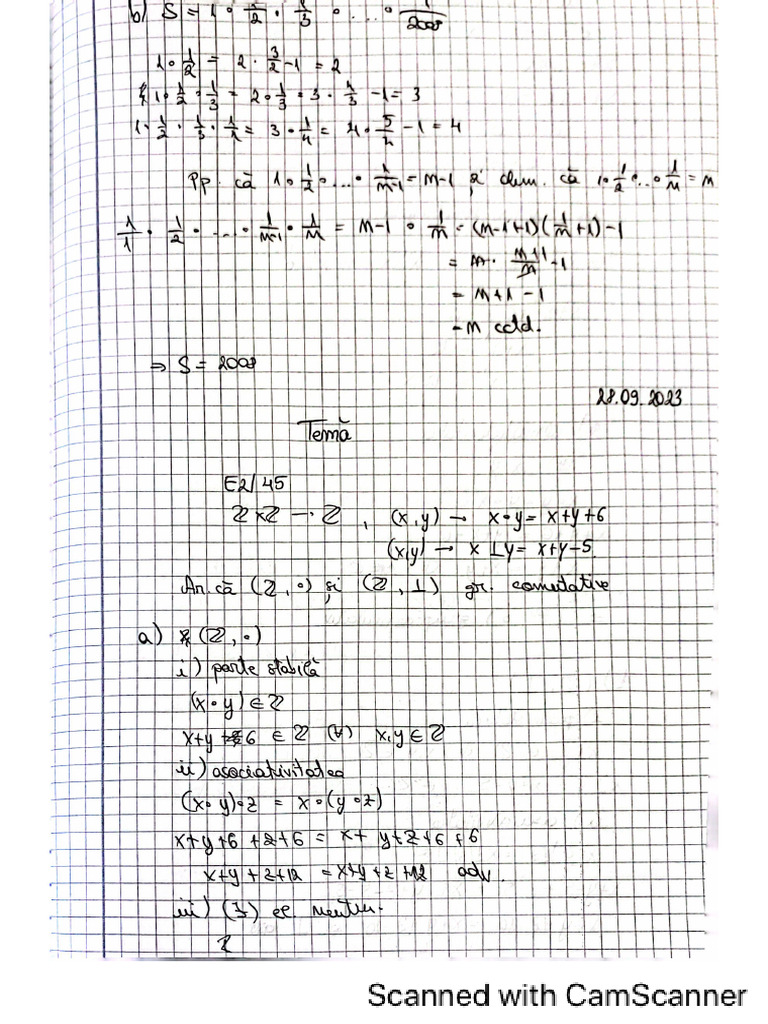 b) S = 1 ∘ 1/2 ∘ 1/3 ∘ ... ∘ 1/2008
1 ∘ 1/2 = 2 · 3/2 - 1 = 2
1 ∘ 1/2 ∘ 1/3 = 2 ∘ 1/3 = 3 · 4/3 - 1 = 3
1 ∘ 1/2 ∘ 1/3 ∘ 1/4 = 3 ∘ 1/4 = 4 · 5/4 - 1 = 4
Pp. că 1 ∘ 1/2 ∘ ... ∘ 1/(n-1) = n-1 și dem. că 1 ∘ 1/2 ∘ ... ∘ 1/n = n
1/1 ∘ 1/2 ∘ ... ∘ 1/(n-1) ∘ 1/n = n-1 ∘ 1/n = (n-1+1)(1/n + 1) - 1
= n · (n+1)/n - 1
= n+1 - 1
= n cctd.
⇒ S = 2008
28.09.2023
Temă
E2/45
ℤ×ℤ → ℤ , (x,y) → x∘y = x+y+6
(x,y) → x⊥y = x+y-5
Ar. că (ℤ,∘) și (ℤ,⊥) gr. comutative
a) (ℤ,∘)
i) parte stabilă
(x∘y) ∈ ℤ
x+y+6 ∈ ℤ (∀) x,y ∈ ℤ
ii) asociativitatea
(x∘y)∘z = x∘(y∘z)
x+y+6+z+6 = x+y+z+6+6
x+y+z+12 = x+y+z+12 adv.
iii) (∃) el. neutru.